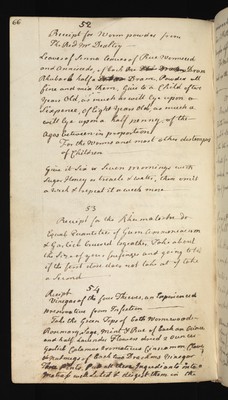 66
52
Receipt for Worm powders from
The Revd Mr Bealley
Leaves of Senna leaves of Rue Wormseed
and Aniseeds, of Each one Dram
Rhubarb half a Dram. Powder all
fine and mix them. Give to a Child of five
Years Old, as much as will lye upon a
Sixpence, of Eight Years Old, as much as
will lye upon a half penny, & the
Ages between in proportion
For the Worms and most other distempers
of Children
Give it Six or Seven mornings with
Sugar Honey or treacle & water, then omit
a week & repeat it a week more
53
Receipt for the Rheumatick do.
Equal Quantities of Gum Ammoniacum
& Garlick bruised together. Take about
the size of your and going to bed
if the first dose does not take it off take
a Second
54
Receipt
Vinegar of the four Thieves, an Experienced
Preservative from Infection
Take the Green Tops of both Wormwoods
Rosemary Sage, Mint & Rue of Each an Ounce
and half Lavender Flowers dried 2 ounces
Garlick Calamus Aromaticus Cinnamon
Nutmegs of Each two Drachms Vinegar
Put all these Ingredients into a
with a Lid & digest them in the